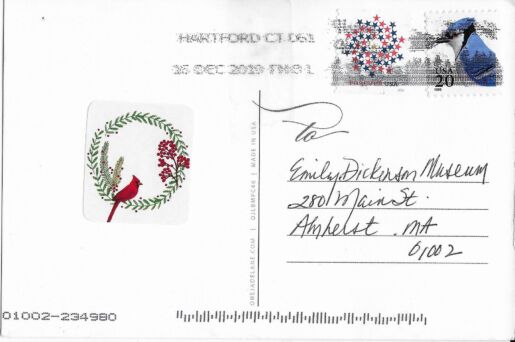 HARTFORD CT 061
16 DEC 2019 PM 3 L
FOREVER USA
USA
20
to
Emily Dickinson Museum
280 Main St.
Amherst. MA
01002
DEEJADELANE.COM | OJLBMPC46 | MADE IN USA
01002-234980